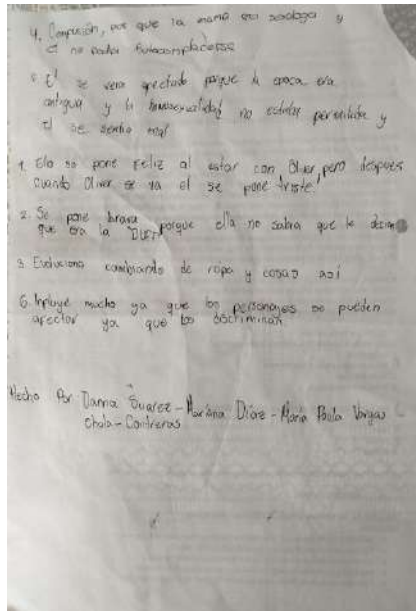 4. Confusión, por que la mamá era sexologa y
el no podia autocomplacerse
El se vera afectado porque la epoca era
antigua y la homosexualidad no estaba permitida y
el se sentia mal
1. Elio se pone feliz al estar con Oliver, pero despues
cuando Oliver se va el se pone triste.
2. Se pone brava porque ella no sabia que le decian
que era la "
3. Evoluciona cambiando de ropa y cosas así
6. Influye mucho ya que los personajes se pueden
afectar ya que los discriminan
Hecho Por Danna Suarez - Mariana Díaz - María Paula Vargas
Chala - Contreras